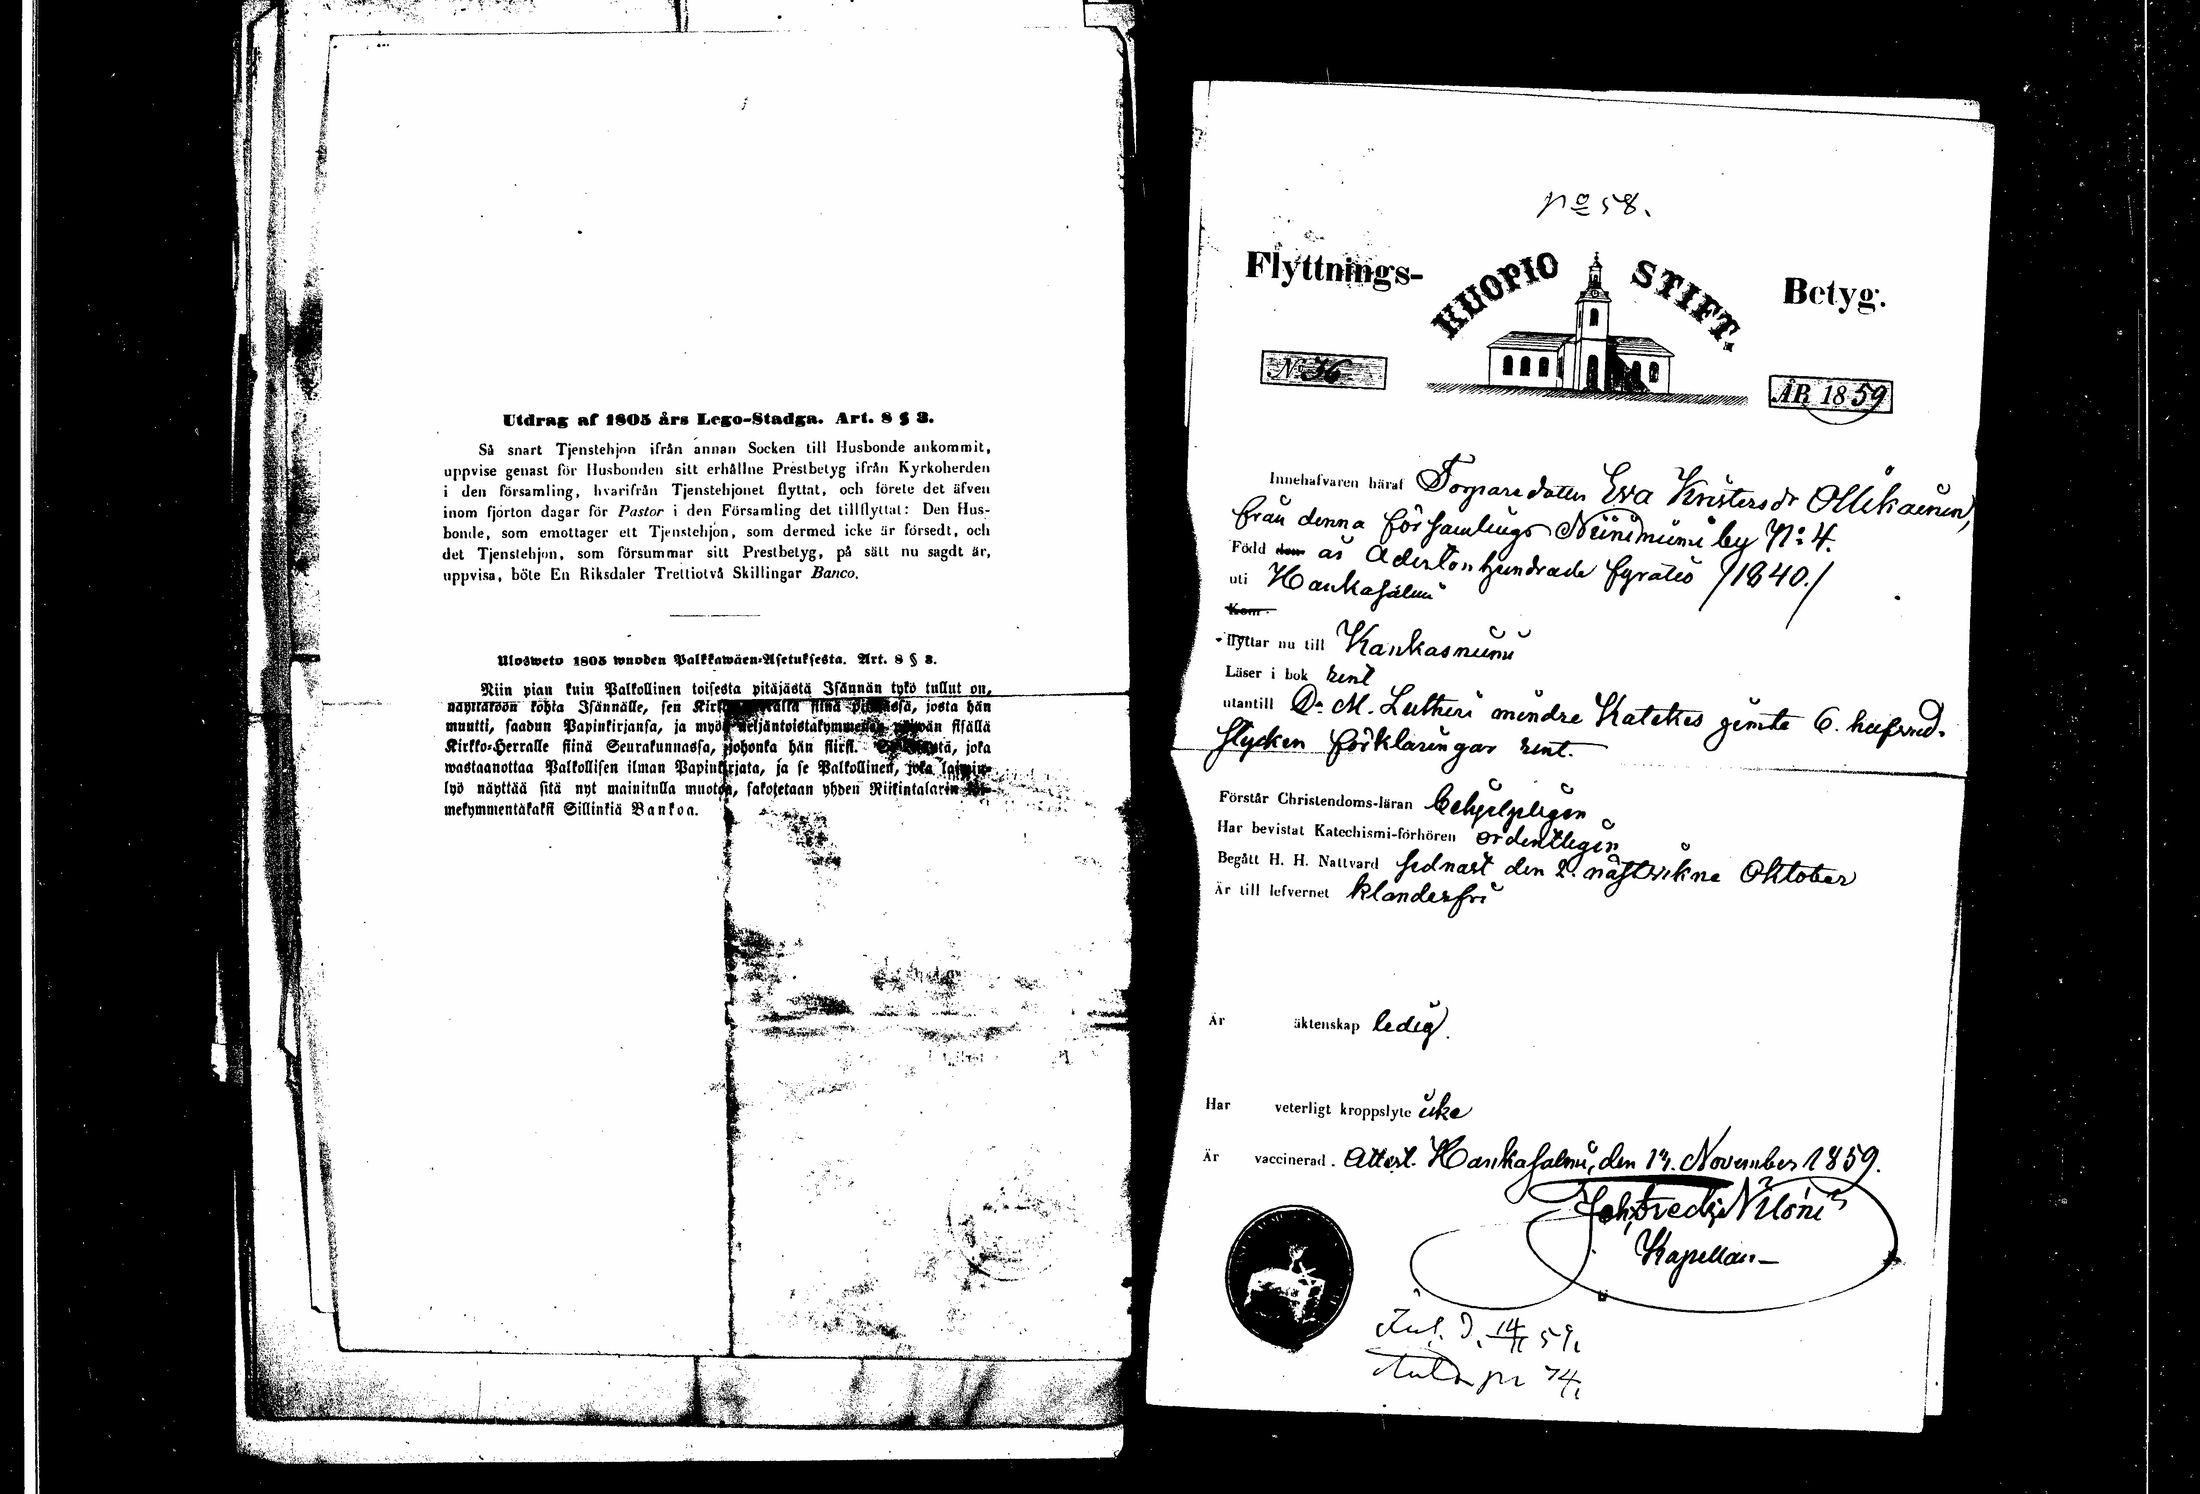 Utdrag af 1805 års Lego-Stadga. Art. 8 § 3.
Så snart Tjenstehjon ifrån annan Socken till Husbonde ankommit,
uppvise genast för Husbonden sitt erhållne Prestbetyg ifrån Kyrkoherden
i den församling, hvarifrån Tjenstehjonet flyttat, och förete det äfven
inom fjorton dagar för Pastor i den Församling det tillflyttat: Den Hus-
bonde, som emottager ett Tjenstehjon, som dermed icke är försedt, och
det Tjenstehjon, som försummar sitt Prestbetyg, på sätt nu sagdt är,
uppvisa, böte En Riksdaler Trettiotvå Skillingar Banco.
Ulosweto 1805 wuoden Palkkawäen-Asetuksesta. Art. 8 § 3.
Niin pian kuin Palkollinen toisesta pitäjästä Isännän tykö tullut on,
näyttäköön kohta Isännälle, sen siinä josta hän
muutti, saadun Papinkirjansa, ja myös neljäntoistakymmenen päiwän sisällä
Kirkko-Herralle siinä Seurakunnassa, johonka hän siirsi. joka
wastaanottaa Palkollisen ilman Papinkirjata, ja se Palkollinen, joka
lyö näyttää sitä nyt mainitulla muotoa, sakotetaan yhden Riikintalarin
mekymmentäkaksi Sillinkiä Bankoa.
No 58.
Flyttnings- KUOPIO STIFT. Betyg.
No 36
ÅR 1859
Innehafvaren häraf Torparedotter Eva Kristersdr Ollikainen,
från denna församlings Niinimäki by No 4.
Född den år Adertonhundrade fyratio /1840./
uti Hankasalmi
Kom
flyttar nu till Kankasniemi
Läser i bok rent
utantill Dr M. Lutheri mindre Katekes jemte 6. hufvud-
stycken förklaringar rent.
Förstår Christendoms-läran behjelpligen
Har bevistat Katechismi-förhören ordentligen
Begått H. H. Nattvard sednast den 2. nästvikne Oktober
Är till lefvernet klanderfri
Är äktenskap ledig.
Har veterligt kroppslyte icke
Är vaccinerad. Attest. Hankasalmi, den November 1859.
Kapellan
14/11 59.